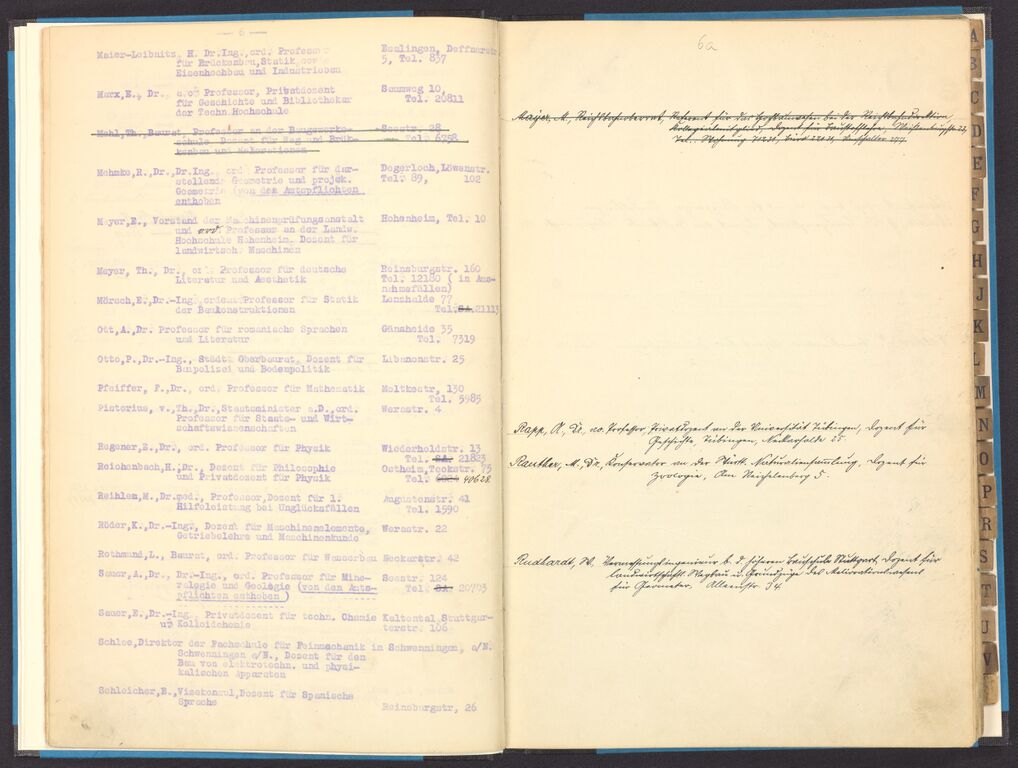 — 6 —
Maier-Leibnitz, H. Dr.Ing., ord. Professor
für Brückenbau, Statik,
Eisenhochbau und Industriebau
Esslingen, Deffnerstr.
5, Tel. 837
Marx,E., Dr. a.o. Professor, Privatdozent
für Geschichte und Bibliothekar
der Techn.Hochschule
Saumweg 10,
Tel. 20811
Mehl,Th., Baurat, Professor an der Baugewerke-
schule, Dozent für Weg und Brük-
kenbau und Dekorationen
Seestr. 28
Tel 6758
Mehmke,R.,Dr.,Dr.Ing. ord Professor für dar-
stellende Geometrie und projek.
Geometrie (von den Amtspflichten
enthoben
Degerloch,Löwenstr.
Tel. 89, 102
Meyer,E., Vorstand der Maschinenprüfungsanstalt
und ord. Professor an der Landw.
Hochschule Hohenheim, Dozent für
landwirtsch. Maschinen
Hohenheim, Tel. 10
Meyer, Th., Dr., ord. Professor für deutsche
Literatur und Aesthetik
Reinsburgstr. 160
Tel. 12180 ( in Aus-
nahmefällen)
Mörsch,E,Dr.-Ing, ordentl. Professor für Statik
der Baukonstruktionen
Lenzhalde 77
Tel. SA 21113
Ott,A.,Dr. Professor für romanische Sprachen
und Literatur
Gänsheide 35
Tel. 7319
Otto,P.,Dr.-Ing., Städt. Oberbaurat, Dozent für
Baupolizei und Bodenpolitik
Libanonstr. 25
Pfeiffer, F.,Dr., ord. Professor für Mathematik
Moltkestr, 130
Tel. 5985
Pistorius, v.,Th.,Dr.,Staatsminister a.D.,ord.
Professor für Staats- und Wirt-
schaftswissenschaften
Werastr. 4
Regener,E.,Dr., ord. Professor für Physik
Wiederholdstr. 13
Tel. SA 21823
Reichenbach,H.,Dr., Dozent für Philosophie
und Privatdozent für Physik
Ostheim,Teckstr. 75
Tel. 40628
Reihlen,M.,Dr.med., Professor,Dozent für 1.
Hilfeleistung bei Unglücksfällen
Augustenstr. 41
Tel. 1590
Röder,K.,Dr.-Ing., Dozent für Maschinenelemente,
Getriebelehre und Maschinenkunde
Werastr. 22
Rothmund,L., Baurat, ord. Professor für Wasserbau
Neckarstr. 42
Sauer,A.,Dr., Dr.-Ing., ord. Professor für Mine-
ralogie und Geologie (von den Amts-
pflichten enthoben )
Seestr. 124
Tel SA 20703
Sauer,E.,Dr.-Ing. Privatdozent für techn. Chemie
u. Kolloidchemie
Kaltental Stuttgar-
terstr. 106
Schlee,Direktor der Fachschule für Feinmechanik in Schwenningen, a/N.
Schwenningen a/N., Dozent für den
Bau von elektrotechn. und physi-
kalischen Apparaten
Schleicher,B.,Vizekonsul,Dozent für Spanische
Sprache
Reinsburgstr, 26
6a
Mayer, M., Reichsbahnoberrat, Referent für der bei der Reichsbahndirektion,
Rapp, A, Dr., ao. Professor, Privatdozent an der Universität Tübingen, Dozent für
Geschichte, Tübingen, Neckarhalde 25
Rauther, M., Dr, Konservator an der Württ. Naturaliensammlung, Dozent für
Zoologie, Am Reichelenberg 5.
Rudharat, W. Vermessungsingenieur b. d. Stuttgart, Dozent für
landwirtschaftl. Wegbau u. Grundzüge des Meliorationswesens
für Geometer, 34.
A
B
C
D
E
F
G
H
J
K
L
M
N
O
P
R
S
T
U
V